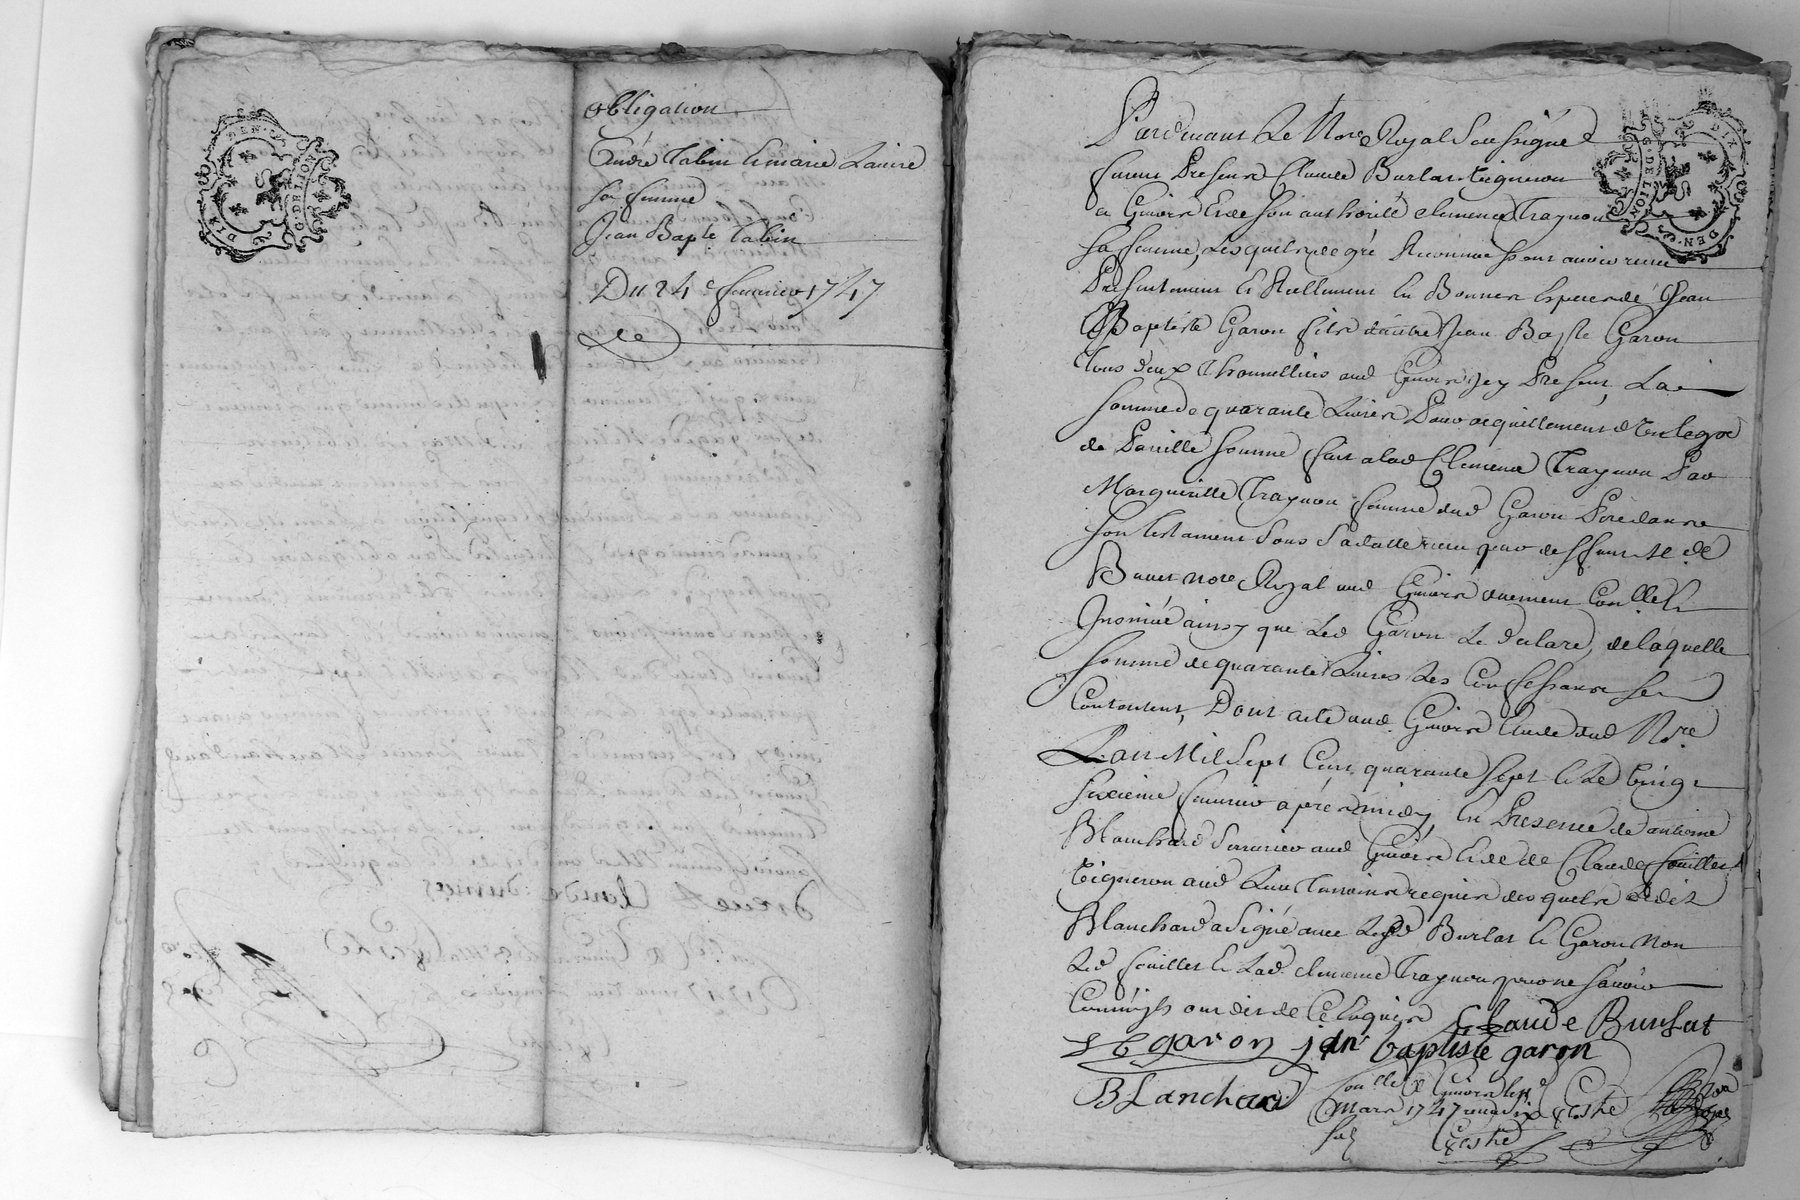 obligation
André Tabin et marie Lavire
sa femme
Jean Bapte Tabin
Du 24e feuurier 1747
G. DE LION
DIX DEN.
Pardeuant Le Nore Royal Soussigné
furent Presens Claude Burlat vigneron
a Giuors et de son authorité clemence Traynon
sa femme, Lesquels de gré Reconnoissent auoir receu
Presentement et Reellement en Bonnes especes de Jean
Baptiste Garon fils d'autre Jean Bapte Garon
tous deux Thonnelliers aud Giuors jcy Presens, La
somme de quarante Liures Pour acquittement du Legat
de Pareille somme fait a lad Clemence Traynon Par
Marguerite Traynon femme dud Garon Pere dans
son testament Sous sa datte receu par deffunt Me de
Royal aud Giuors duement Conllé &
Insinué ainsy que Led Garon Le declare, de laquelle
somme de quarante Liures Les Confessants se
Contentent, Dont acte aud Giuors Etude dud Nore
L'an Mil Sept Cent quarante sept et Le vingt
sixieme feuurier apres midy, en Presence de antoine
Blanchard Serrurier aud Giuors et de Claude fouillet
vigneron aud Lieu Temoins requis desquels Ledit
Blanchard a signé auec Led Burlat et Garon Non
Led fouillet et Lad clemence Traynon pour ne sauoir
Comm'ils ont dit de Ce Enquis
Claude Burlat
garon jan baptiste garon
BLanchard
Conllé a Giuors le
mars 1747 reçu dix s